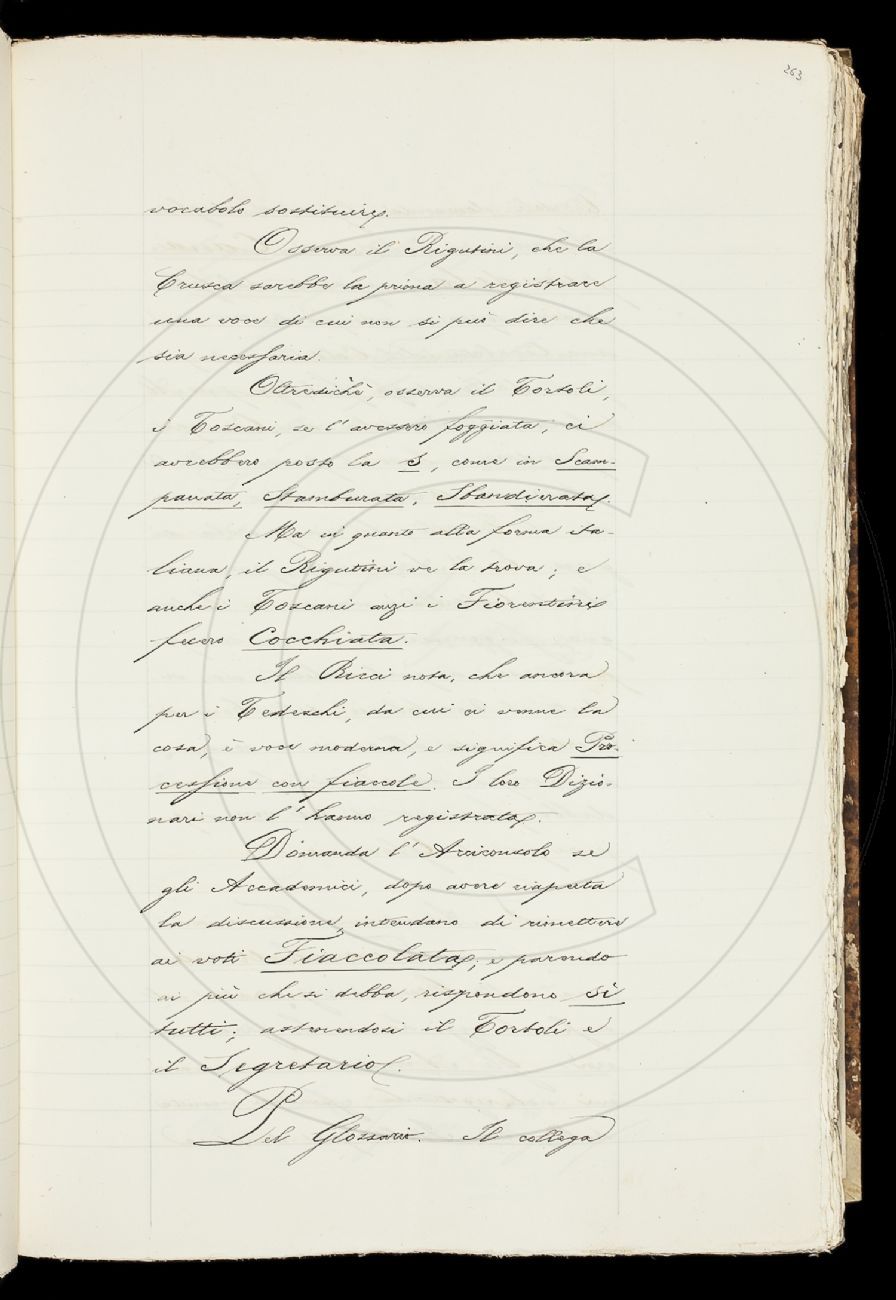 263
vocabolo sostituire.
Osserva il Rigutini, che la
Crusca sarebbe la prima a registrare
una voce di cui non si può dire che
sia necessaria.
Oltredichè, osserva il Tortoli,
i Toscani, se l'avessero foggiata, ci
avrebbero posto la S, come in Scam-
panata, Stamburata, Sbandierata.
Ma in quanto alla forma ita-
liana, il Rigutini ve la trova; e
anche i Toscani anzi i Fiorentini
fecero Cocchiata.
Il Ricci nota, che ancora
per i Tedeschi, da cui ci venne la
cosa, è voce moderna, e significa Pro-
cessione con fiaccole. I loro Dizio-
nari non l'hanno registrata.
Domanda l'Arciconsolo se
gli Accademici, dopo avere riaperta
la discussione, intendano di rimettere
ai voti Fiaccolata; e parendo
ai più che si debba, rispondono sì
tutti; astenendosi il Tortoli e
il Segretario.
Pel Glossario. Il collega